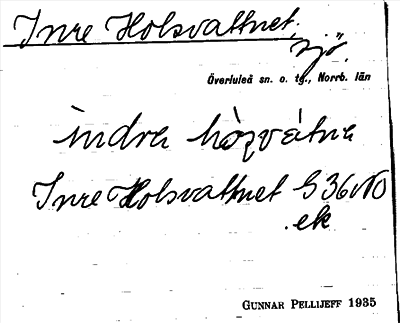 Inre Holsvattnet,
sjö.
Överluleå sn. o. tg., Norrb. län
indra hòzvátna
Inre Holsvattnet G 36 NO
. ek
GUNNAR PELLIJEFF 1935